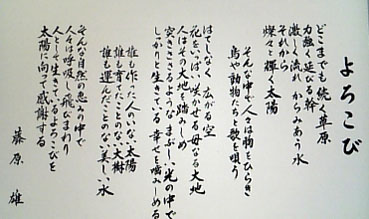 よろこび
どこまでも続く草原
力強く延びる幹
激しく流れ からみあう水
それから
燦々と輝く太陽
そんな中で人々は物とひらき
鳥や動物たちと歌を唄う
はてしなく広がる空
花をいっぱい咲かせる母なる大地
人はその大地を踏みしめ
空ききるようなまぶしい光の中で
しっかりと生きている幸せを噛みしめる
誰も作った人のいない太陽
誰も育てたことのない大樹
誰も運んだことのない美しい水
そんな自然の恵みの中で
人々は呼吸し飛びまわり
人として生きているよろこびを
太陽に向って感謝する
藤原 雄